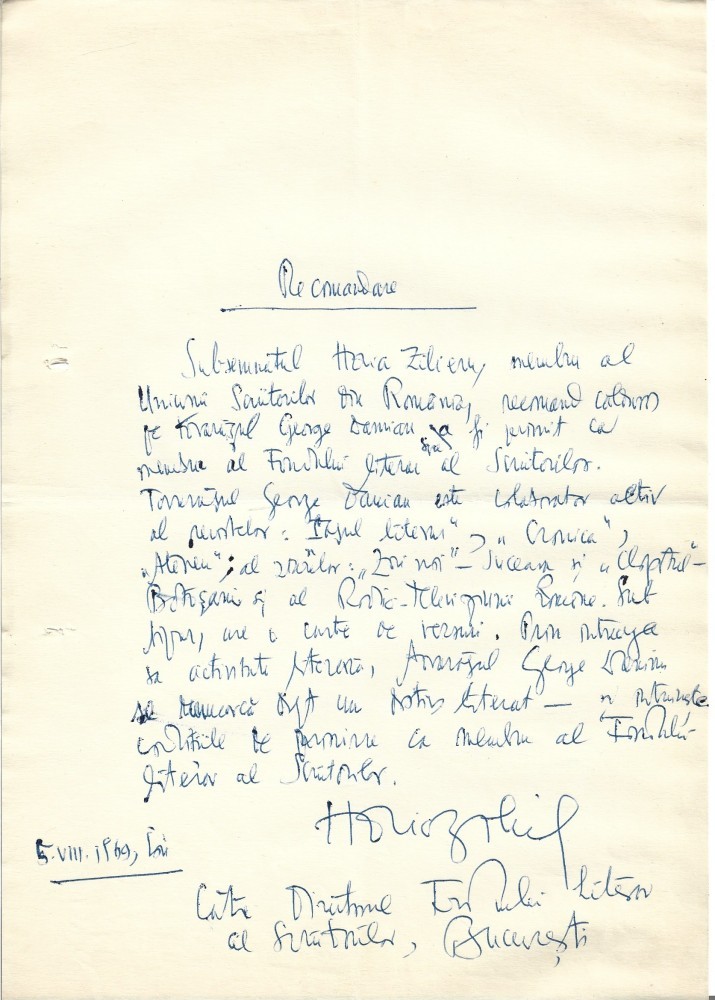 Recomandare
Subsemnatul Horia Zilieru, membru al
Uniunii Scriitorilor din România, recomand călduros
pe tovarășul George Damian a fi primit ca
membru al Fondului literar al Scriitorilor.
Tovarășul George Damian este colaborator activ
al revistelor: "Iașul literar", "Cronica",
"Ateneu"; al ziarelor: "Zori noi" – Suceava și "Clopotul" –
Botoșani și al Radio-Televiziunii Române. Sub
tipar, are o carte de versuri. Prin întreaga
sa activitate literară, tovarășul George Damian
se remarcă drept un literat – și întrunește
condițiile de primire ca membru al Fondului
literar al Scriitorilor.
Horia Zilieru
5.VIII.1969, Iași
Către Direcțiunea Fondului literar
al Scriitorilor, București